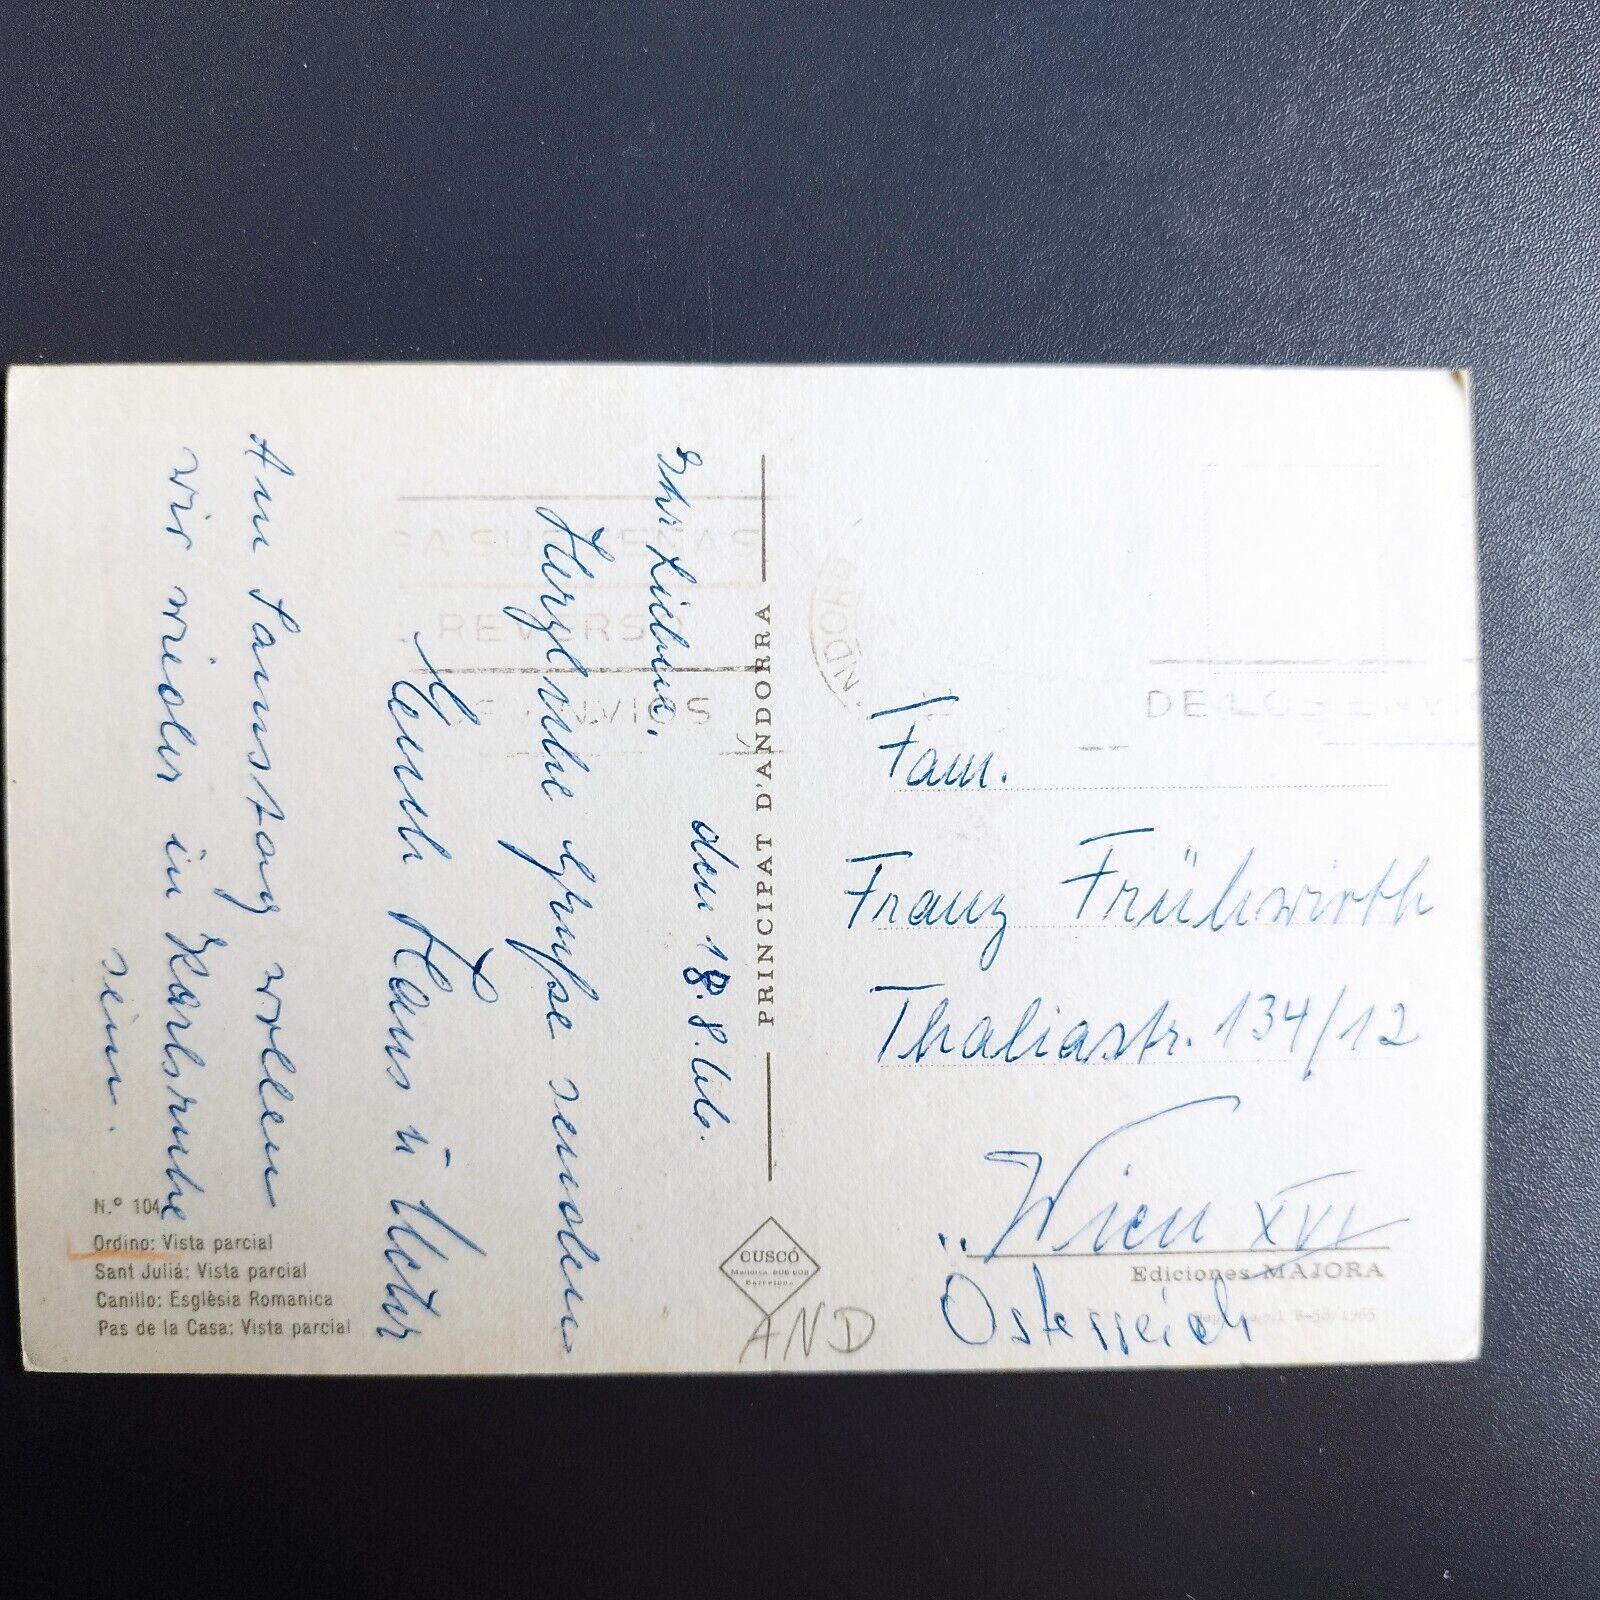 Ihr Lieben,
den 18.8.66.
Herzliche Grüße senden
Euch Hans u.
Am Samstag wollen
wir wieder in Karlsruhe
sein.
PRINCIPAT D'ANDORRA
CUSCÓ
Mallorca
Barcelona
Fam.
Franz Frühwirth
Thaliastr. 134/12
Wien XVI
Österreich
Ediciones MAJORA
1965
AND
REVERSO
ENVIOS
DE LOS ENVIOS
N.º 104
Ordino: Vista parcial
Sant Juliá: Vista parcial
Canillo: Esglèsia Romanica
Pas de la Casa: Vista parcial